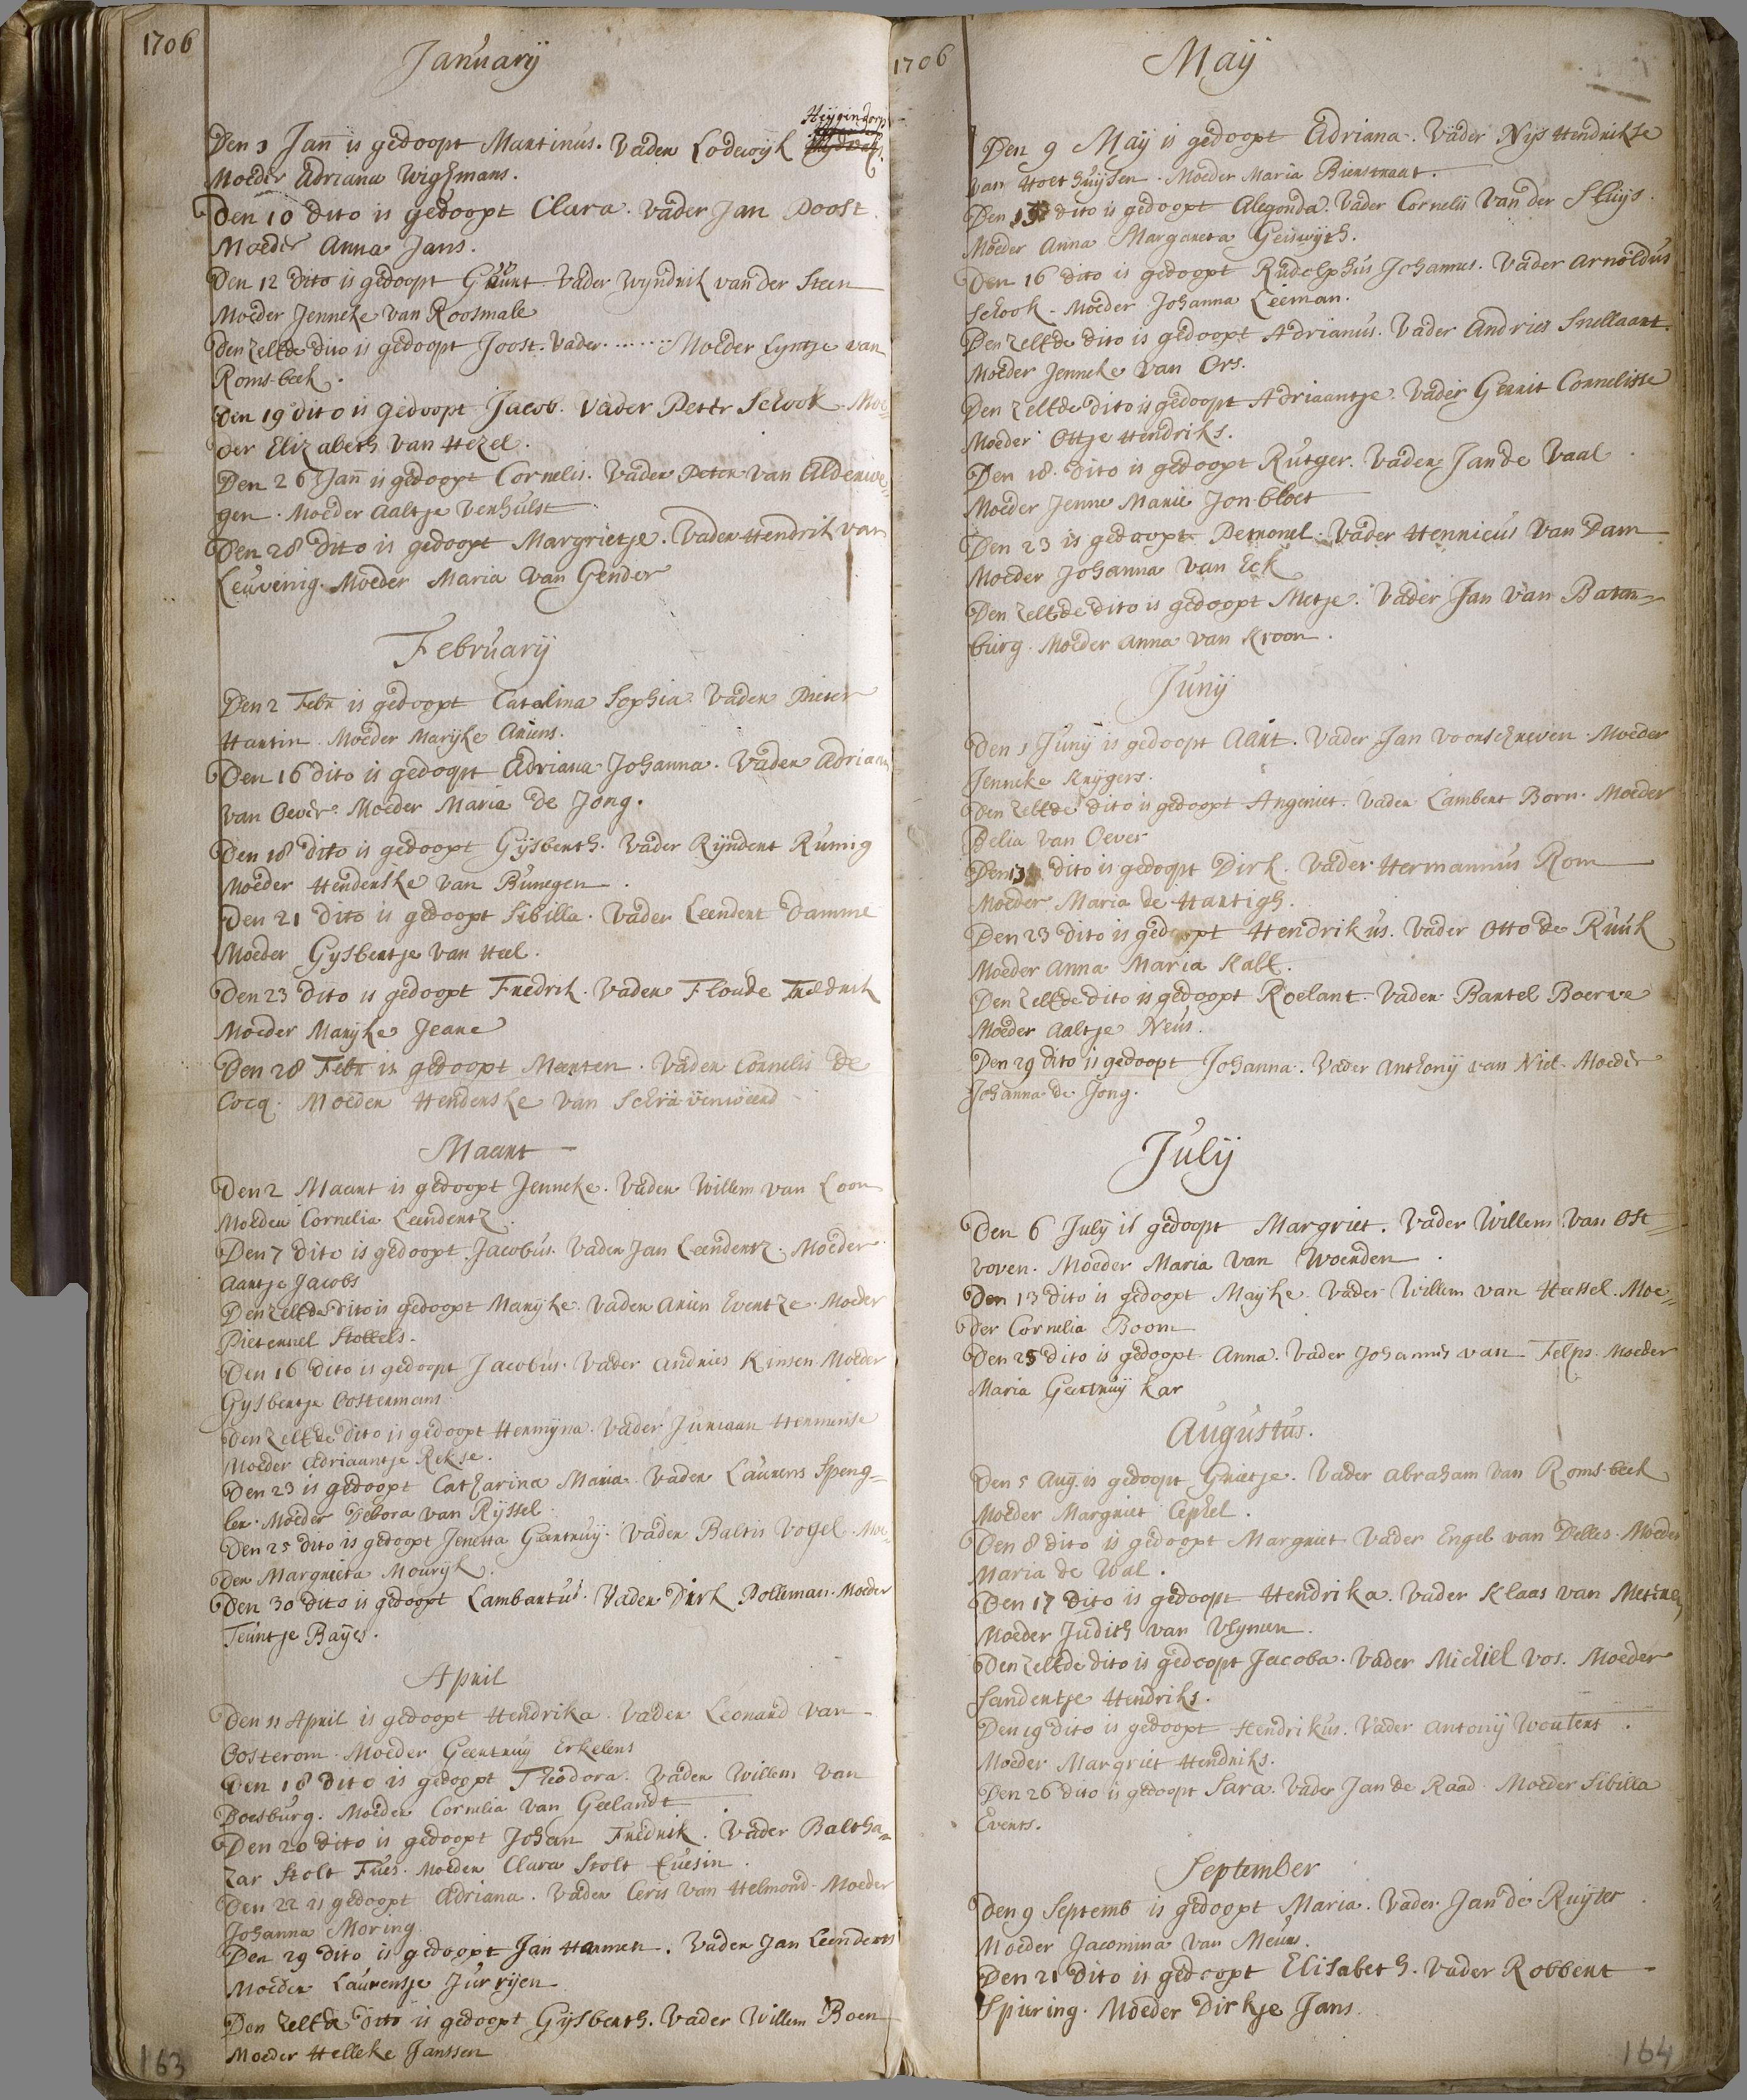 1706
Januarij
Heijgindorp
Den 3 Jan is gedoopt Martinus. Vader Lodewijk
Moeder Adriana Wighmans.
Den 10 dito is gedoopt Clara. Vader Jan Poost.
Moeder Anna Jans.
Den 12 dito is gedoopt Vader Wyndrik van der Steen
Moeder Jenneke van Roosmale
Den zelfde dito is gedoopt Joost. Vader ....... Moeder Lyntje van
Romsbeek.
Den 19 dito is gedoopt Jacob. Vader Peter Schook. Moe-
der Elizabeth van Hezel.
Den 26 Jan is gedoopt Cornelis. Vader Peter van Aldeniwe-
gen. Moeder Aaltje Venhulst
Den 28 dito is gedoopt Margrietje. Vader Hendrik van
Leuvenig. Moeder Maria van Gender
Februarij
Den 2 Febr is gedoopt Catalina Sophia. Vader Pieter
Hartin. Moeder Marijke Ariens.
Den 16 dito is gedoopt Adriana Johanna. Vader Adriaan
van Oever. Moeder Maria de Jong.
Den 18 dito is gedoopt Gijsberth. Vader Rijndert Rumig
Moeder Henderske van Bunegen.
Den 21 dito is gedoopt Sibilla. Vader Leendert Damme
Moeder Gysbertje van Heel.
Den 23 dito is gedoopt Fredrik. Vader Floude Fredrik
Moeder Marijke Jeane
Den 28 Febr is gedoopt Meerten. Vader Cornelis de
Cocq. Moeder Henderske van
Maart
Den 2 Maart is gedoopt Jenneke. Vader Willem van Loon
Moeder Cornelia Leendertz.
Den 7 dito is gedoopt Jacobus. Vader Jan Leendertz. Moeder
Aartje Jacobs
Den zelfde dito is gedoopt Marijke. Vader Arien Evertze. Moeder
Pieternel Stoffels.
Den 16 dito is gedoopt Jacobus. Vader Andries Kinsen. Moeder
Gysbertje Oostermans
Den zelfde dito is gedoopt Hermijna. Vader Juriaan Hermense
Moeder Adriaantje Rekse.
Den 23 is gedoopt Catharina Maria. Vader Laurens Speng-
ler. Moeder Debora van Rijssel.
Den 25 dito is gedoopt Jenetta Geertruij. Vader Baltis Vogel. Moe-
der Margrieta Mourijk.
Den 30 dito is gedoopt Lambartus. Vader Dirk Polleman. Moeder
Teuntje Bayes.
April
Den 11 April is gedoopt Hendrika. Vader Leonard van
Oosterom. Moeder Geertruy Erkelens
Den 18 dito is gedoopt Theodora. Vader Willem van
Doesburg. Moeder Cornelia van Geelandt
Den 20 dito is gedoopt Johan Fredrik. Vader Baltha-
zar Stolt Fues. Moeder Clara Stolt Fuesin.
Den 22 is gedoopt Adriana. Vader Ceris van Helmond. Moeder
Johanna Moring.
Den 29 dito is gedoopt Jan Harmen. Vader Jan Leenderts
Moeder Laurensje Jurrijen
Den zelfde dito is gedoopt Gijsberth. Vader Willem Boen
Moeder Helleke Janssen
163
1706
Maij
Den 9 Maij is gedoopt Adriana. Vader Nijs Hendrikse
van Holthuijsen. Moeder Maria Bienstraat.
Den dito is gedoopt Alegonda. Vader Cornelis van der Sluijs.
Moeder Anna Margareta Geiswijth.
Den 16 dito is gedoopt Rudolphus Johannes. Vader Arnoldus
Schook. Moeder Johanna Leeman.
Den zelfde dito is gedoopt Adrianus. Vader Andries Snellaart.
Moeder Jenneke van Ors.
Den zelfde dito is gedoopt Adriaantje. Vader Gerrit Cornelisse
Moeder Ottje Hendriks.
Den 18. dito is gedoopt Rutger. Vader Jan de Vaal.
Moeder Jenne Marie Jonbloet
Den 23 is gedoopt Petronel. Vader Henricus van Dam
Moeder Johanna van Eck
Den zelfde dito is gedoopt Metje. Vader Jan van Baten-
burg. Moeder Anna van Kroon.
Junij
Den 1 Junij is gedoopt Aart. Vader Jan Voorschreven. Moeder
Jenneke Knijgers.
Den zelfde dito is gedoopt Angeniet. Vader Lambert Born. Moeder
Belia van Oever
Den 13 dito is gedoopt Dirk. Vader Hermannus Rom
Moeder Maria de Hartigh.
Den 23 dito is gedoopt Hendrikus. Vader Otto de Ruuk
Moeder Anna Maria Kalf.
Den zelfde dito is gedoopt Roelant. Vader Bartel Boerve
Moeder Aaltje Neus.
Den 29 dito is gedoopt Johanna. Vader Anthonij van Niel. Moeder
Johanna de Jong.
Julij
Den 6 Julij is gedoopt Margriet. Vader Willem van Ost-
voven. Moeder Maria van Woerden.
Den 13 dito is gedoopt Mayke. Vader Willem van Hassel. Moe-
der Cornelia Boom
Den 25 dito is gedoopt Anna. Vader Johannes van Felps. Moeder
Maria Geertruij Kar
Augustus.
Den 5 Aug. is gedoopt Grietje. Vader Abraham van Romsbeek
Moeder Margriet Cephel.
Den 8 dito is gedoopt Margriet. Vader Engel van Delles. Moeder
Maria de Wal.
Den 17 dito is gedoopt Hendrika. Vader Klaas van
Moeder Judith van Vlymen.
Den zelfde dito is gedoopt Jacoba. Vader Michiel Vos. Moeder
Sandertje Hendriks.
Den 19 dito is gedoopt Hendrikus. Vader Antonij Wouters.
Moeder Margriet Hendriks.
Den 26 dito is gedoopt Sara. Vader Jan de Raad. Moeder Sibilla
Everts.
September
Den 9 Septemb is gedoopt Maria. Vader Jan de Ruijter.
Moeder Jacomina van Meurs.
Den 21 dito is gedoopt Elisabeth. Vader Robbert
Spiering. Moeder Dirkje Jans.
164